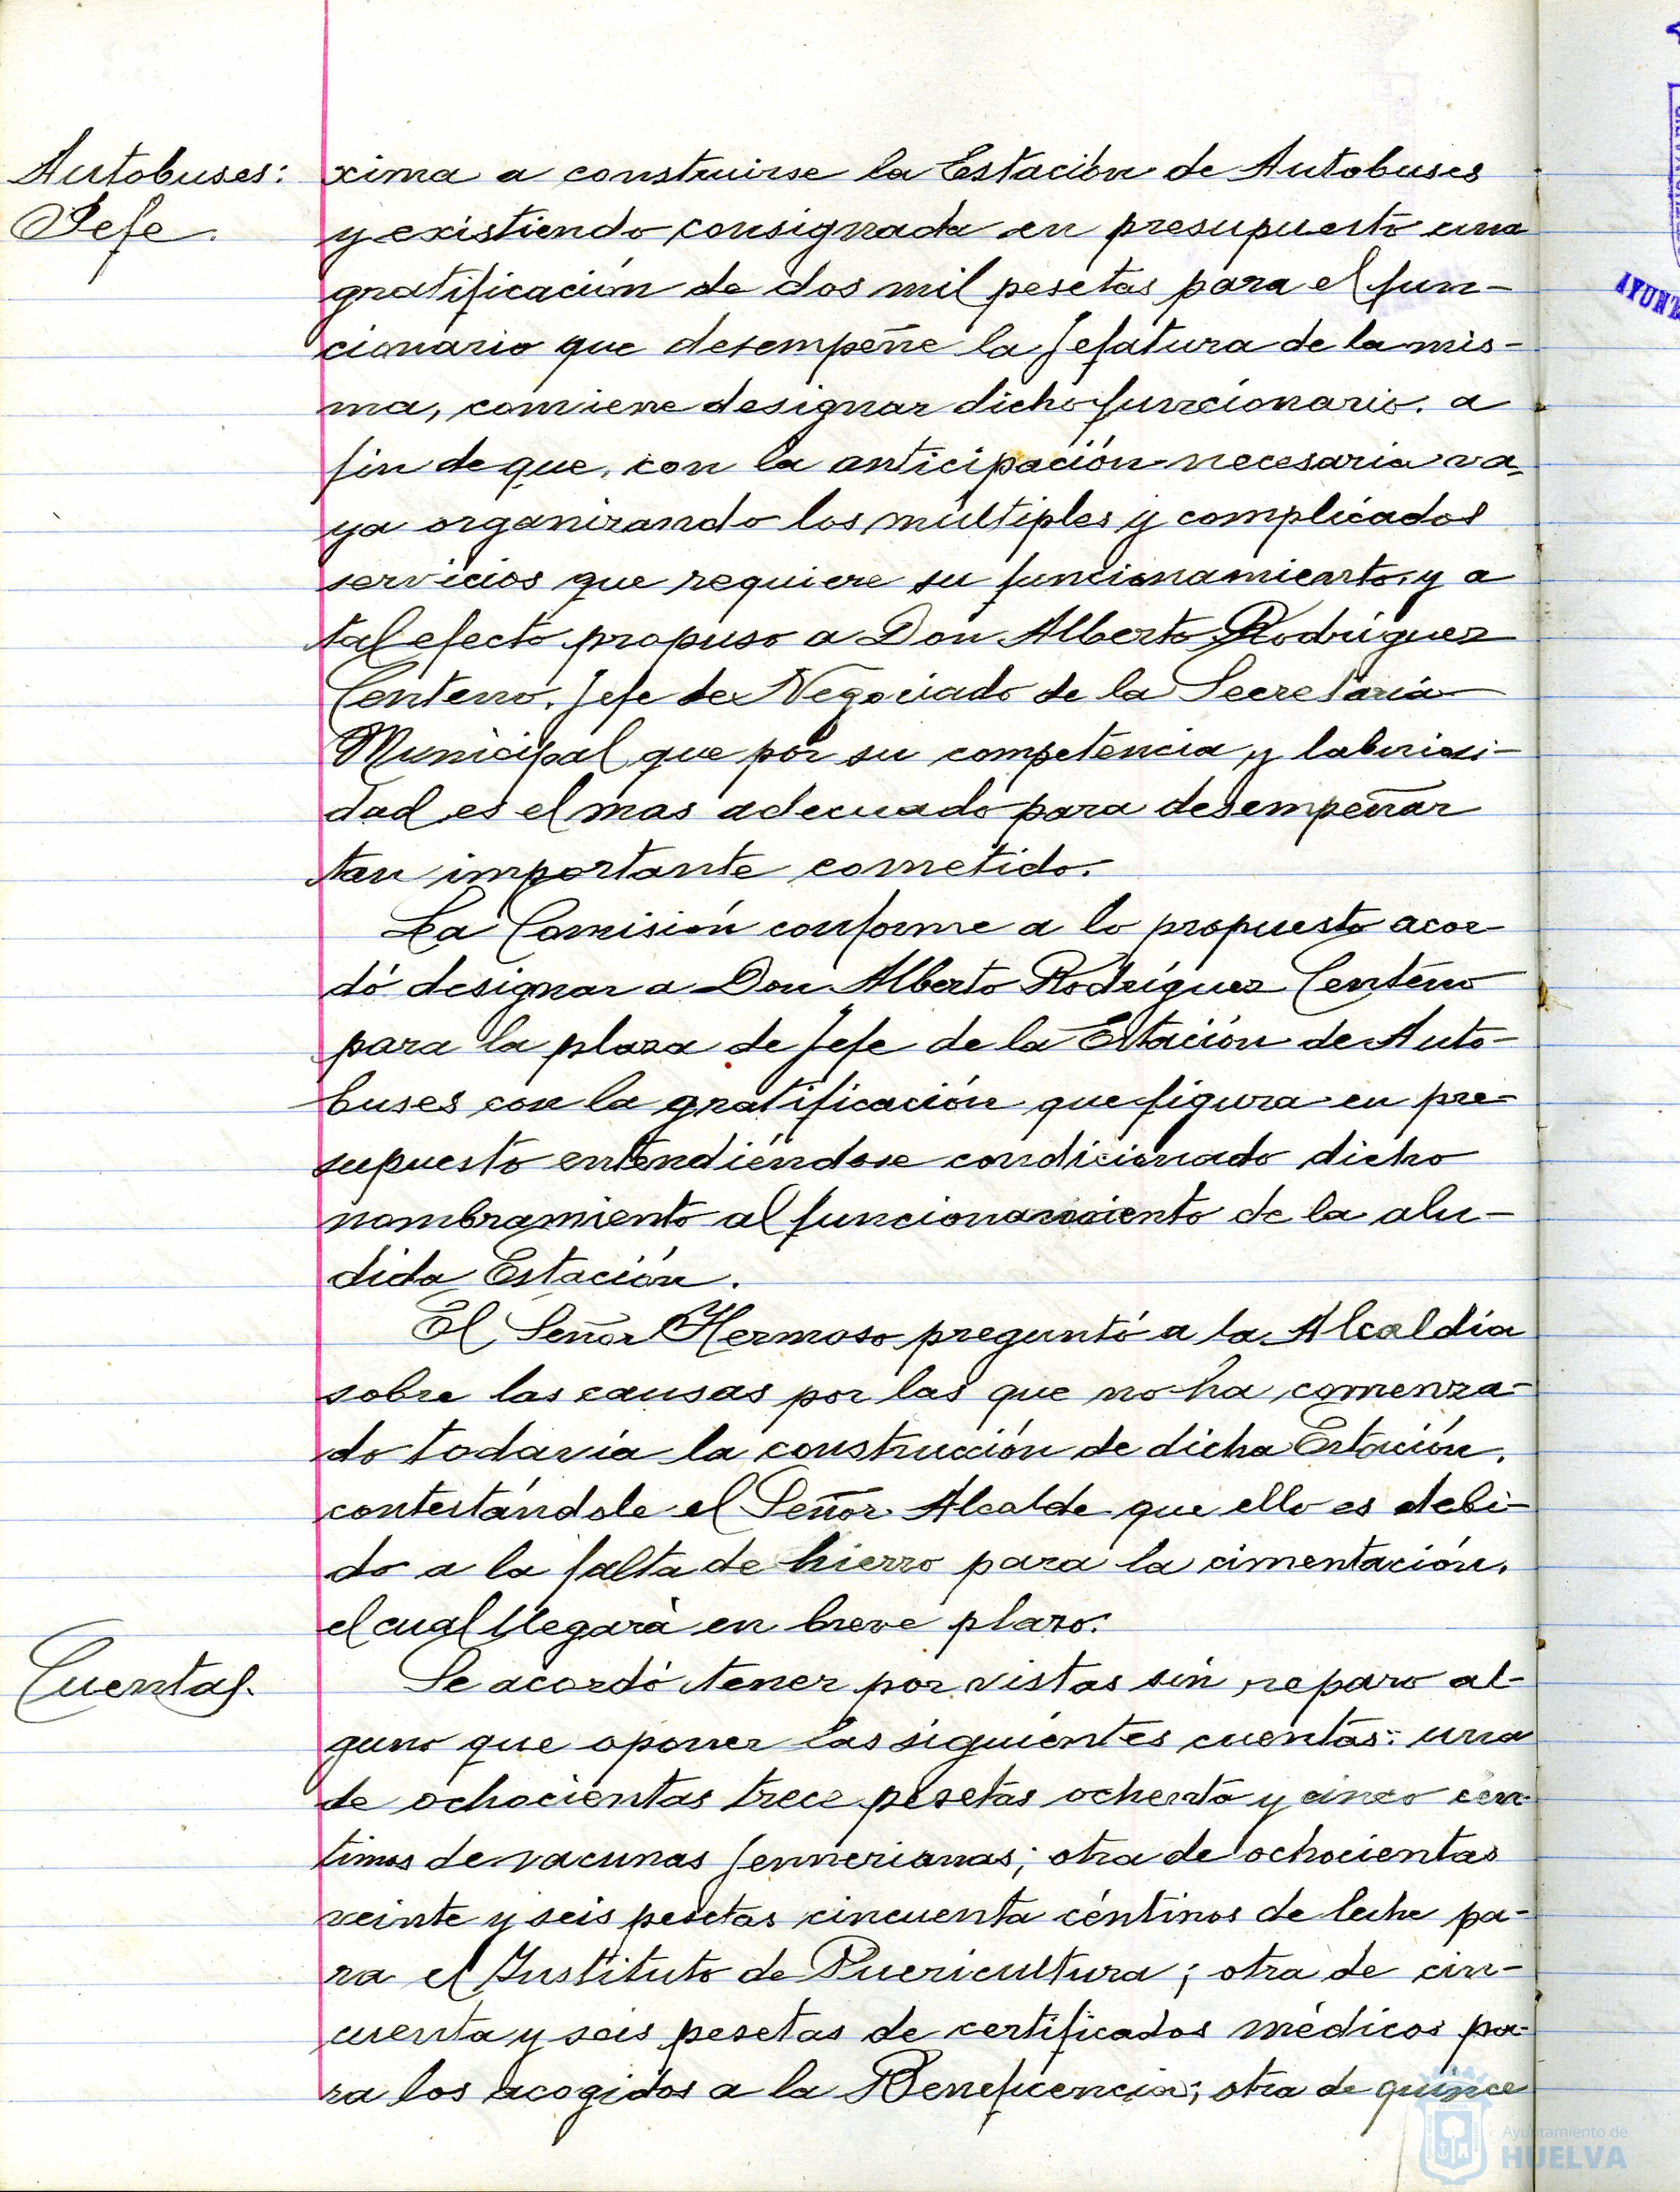 Autobuses:
Jefe.
xima a construirse la Estación de Autobuses
y existiendo consignada en presupuesto una
gratificación de dos mil pesetas para el fun-
cionario que desempeñe la Jefatura de la mis-
ma, conviene designar dicho funcionario. a
fin de que, con la anticipación necesaria va-
ya organizando los múltiples y complicados
servicios que requiere su funcionamiento, y a
tal efecto propuso a Don Alberto Rodríguez
Centeno, Jefe de Negociado de la Secretaría
Municipal que por su competencia y laboriosi-
dad es el mas adecuado para desempeñar
tan importante cometido.
La Comisión conforme a lo propuesto acor-
dó designar a Don Alberto Rodríguez Centeno
para la plaza de Jefe de la Estación de Auto-
buses con la gratificación que figura en pre-
supuesto entendiéndose condicionado dicho
nombramiento al funcionamiento de la alu-
dida Estación.
El Señor Hermoso preguntó a la Alcaldía
sobre las causas por las que no ha comenza-
do todavía la construcción de dicha Estación,
contestándole el Señor Alcalde que ello es debi-
do a la falta de hierro para la cimentación,
el cual llegará en breve plazo.
Cuentas.
Se acordó tener por vistas sin reparo al-
guno que oponer las siguientes cuentas: una
de ochocientas trece pesetas ochenta y cinco cén-
timos de vacunas Jennerianas; otra de ochocientas
veinte y seis pesetas cincuenta céntimos de leche pa-
ra el Instituto de Puericultura; otra de cin-
cuenta y seis pesetas de certificados médicos pa-
ra los acogidos a la Beneficencia; otra de quince
Ayuntamiento de
HUELVA